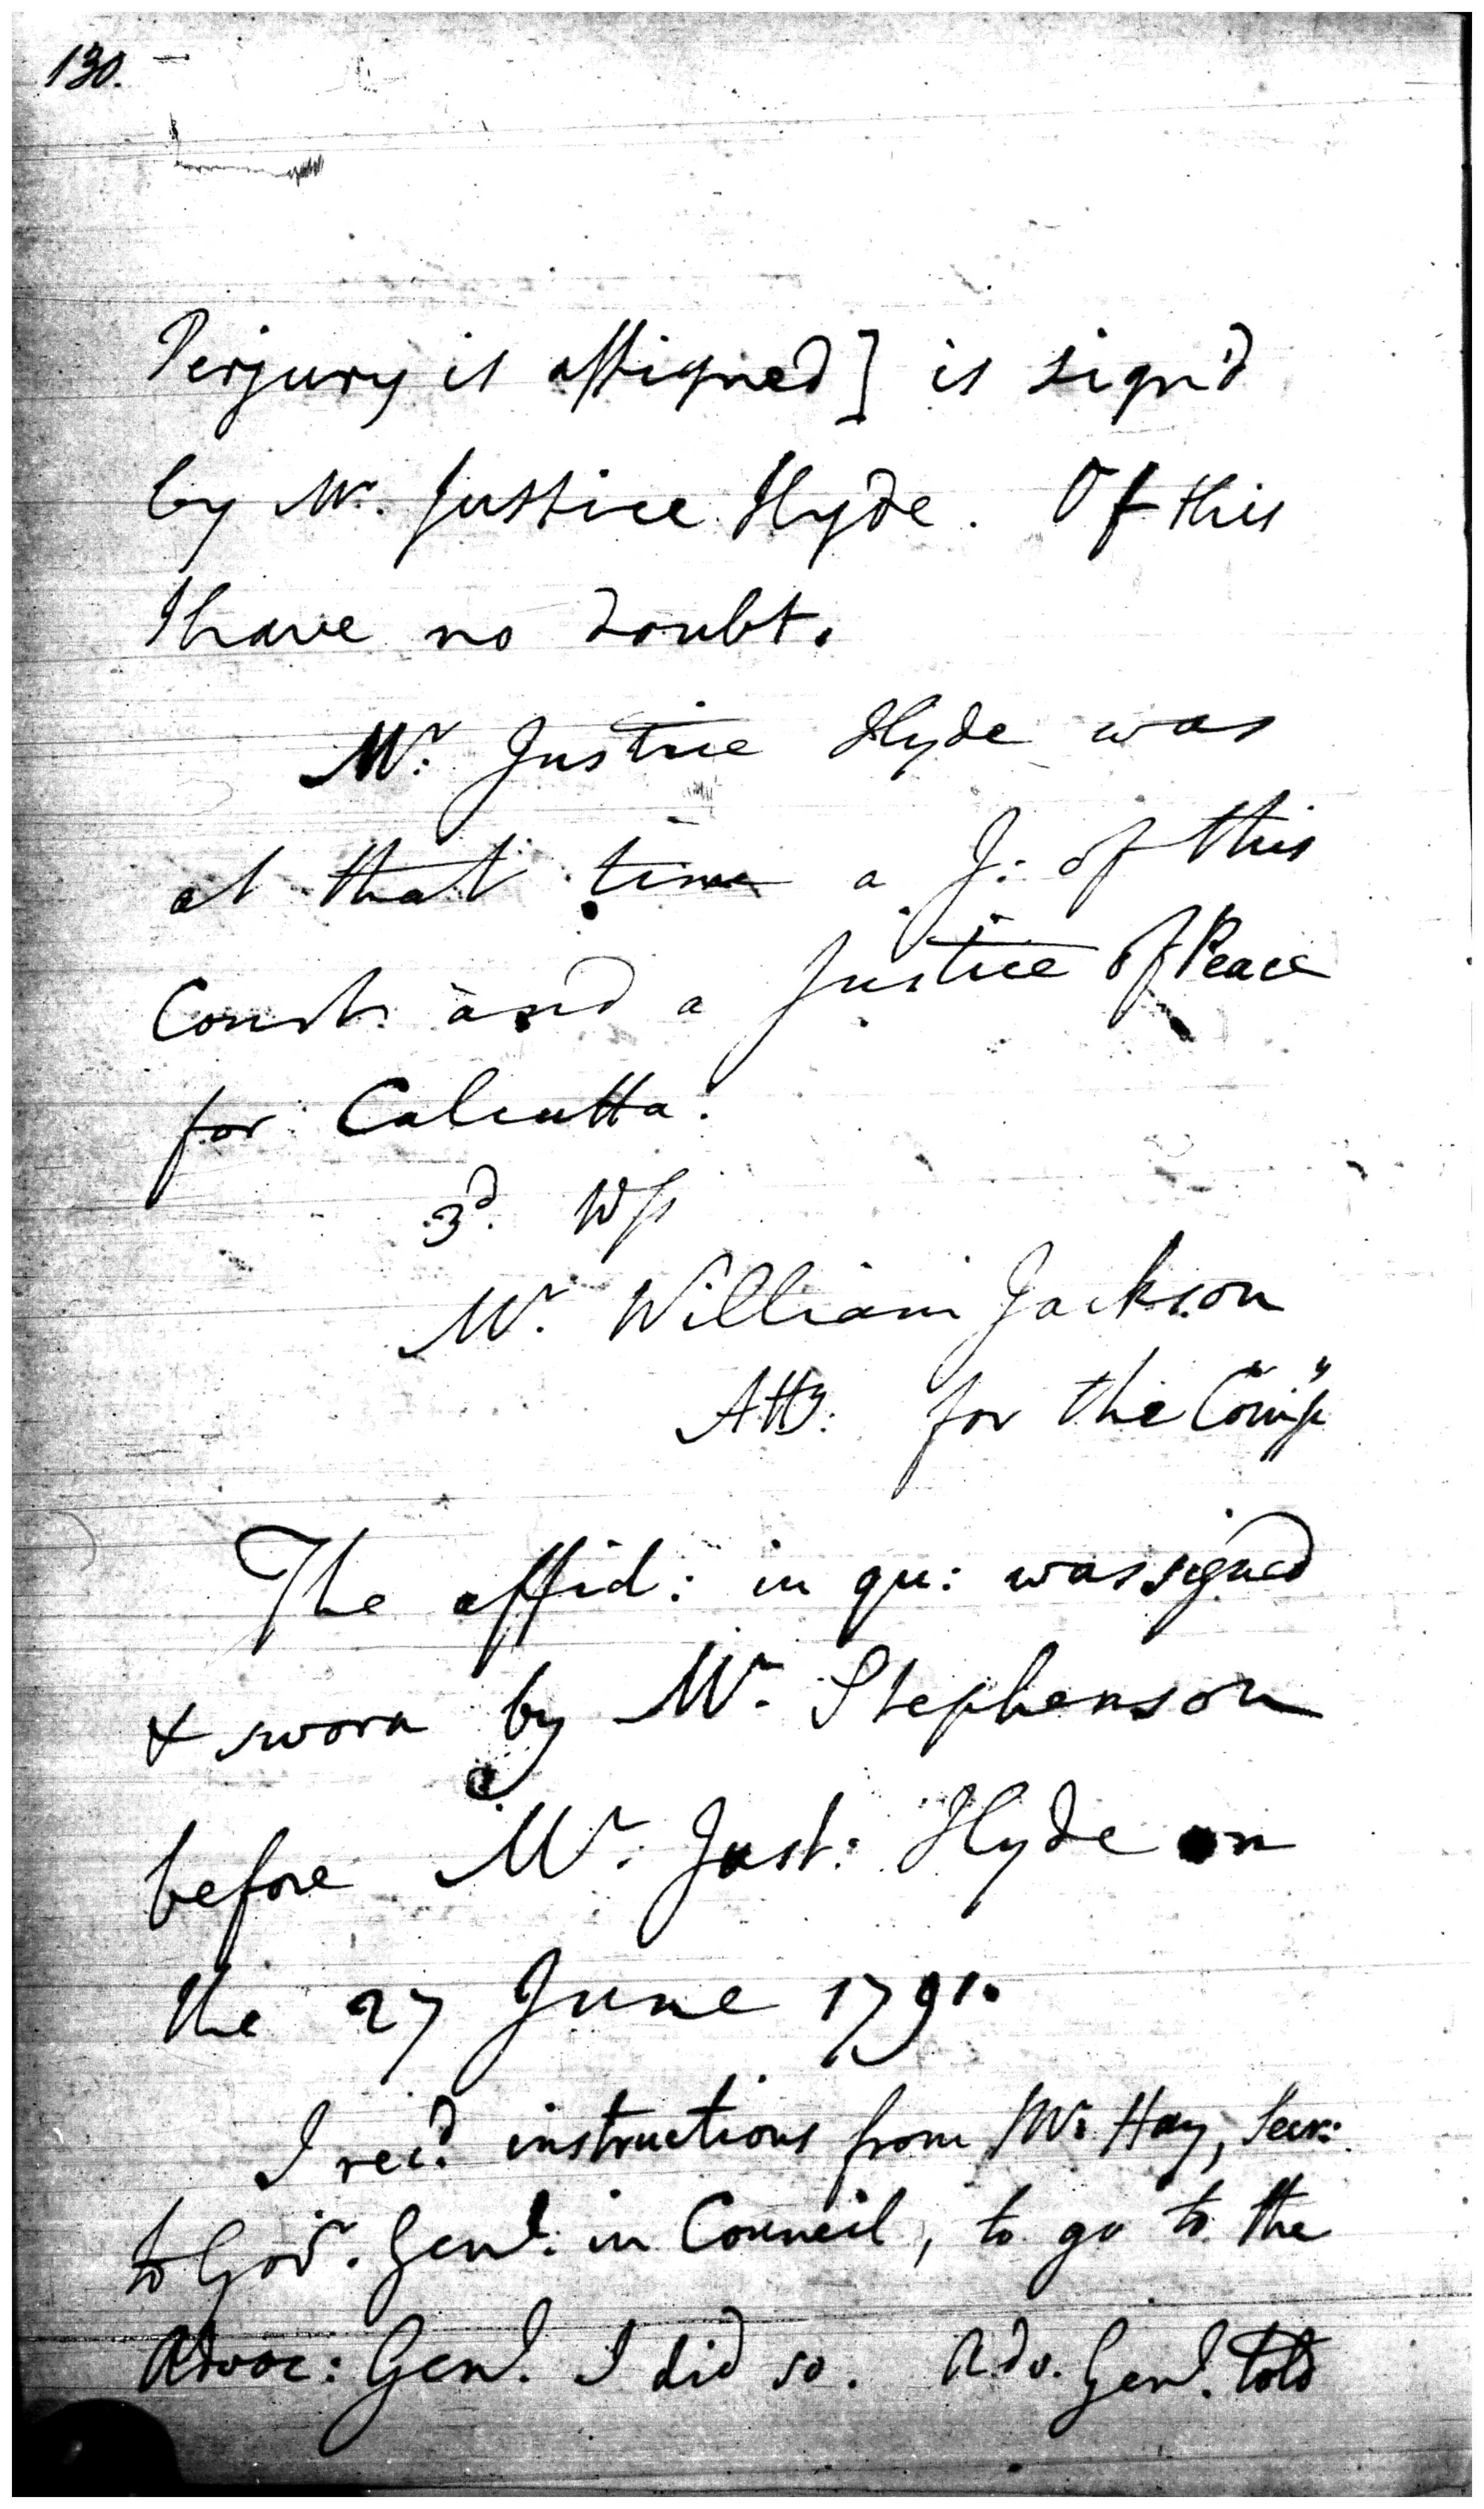 130.
Perjury is assigned] is sign'd
by Mr. Justice Hyde. Of this
I have no doubt.
Mr. Justice Hyde was
at that time a J: of this
Court. and a Justice of Peace
for Calcutta.
3d. Ws
Mr. William Jackson
Atty. for the Compy
The affid: in qu: was signed
& sworn by Mr. Stephenson
before Mr. Just: Hyde on
the 27 June 1791.
I recd. instructions from Mr. Hay, Secr:
to Govr. Genl. in Council, to go to the
Advoc: Genl. I did so. Adv. Genl. told